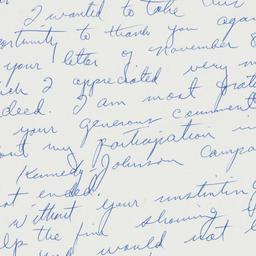 I wanted to take this
opportunity to thank you again
your letter of November 8
I appreciated very m
deed. I am most grate
your generous comments
my participation in
Kennedy-Johnson Campa
st ended.
without your unstinting
lp the fine showing y
would not b